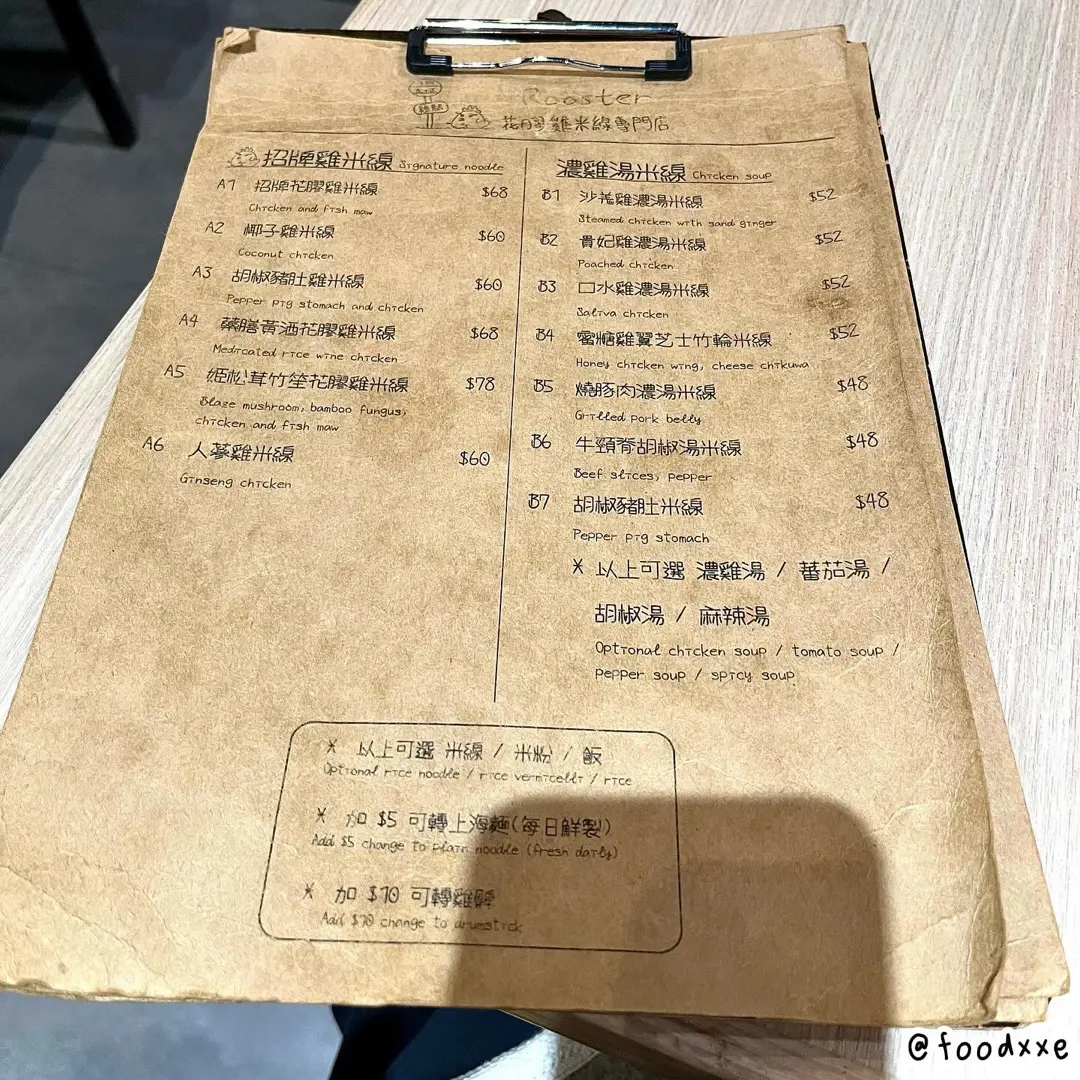 Rooster
花膠雞米線專門店
招牌雞米線 Signature noodle
A1 招牌花膠雞米線 $68
Chicken and fish maw
A2 椰子雞米線 $60
Coconut chicken
A3 胡椒豬肚雞米線 $60
Pepper pig stomach and chicken
A4 藥膳黃酒花膠雞米線 $68
Medicated rice wine chicken
A5 姬松茸竹笙花膠雞米線 $78
Blaze mushroom, bamboo fungus,
chicken and fish maw
A6 人蔘雞米線 $60
Ginseng chicken
濃雞湯米線 Chicken soup
B1 沙薑雞濃湯米線 $52
Steamed chicken with sand ginger
B2 貴妃雞濃湯米線 $52
Poached chicken
B3 口水雞濃湯米線 $52
Saliva chicken
B4 蜜糖雞翼芝士竹輪米線 $52
Honey chicken wing, cheese chikuwa
B5 燒豚肉濃湯米線 $48
Grilled pork belly
B6 牛頸脊胡椒湯米線 $48
Beef slices, pepper
B7 胡椒豬肚米線 $48
Pepper pig stomach
* 以上可選 濃雞湯 / 蕃茄湯 /
胡椒湯 / 麻辣湯
Optional chicken soup / tomato soup /
pepper soup / spicy soup
* 以上可選 米線 / 米粉 / 飯
Optional rice noodle / rice vermicelli / rice
* 加 $5 可轉上海麵(每日鮮製)
Add $5 change to plain noodle (fresh daily)
* 加 $10 可轉雞髀
Add $10 change to drumstick
@foodxxe